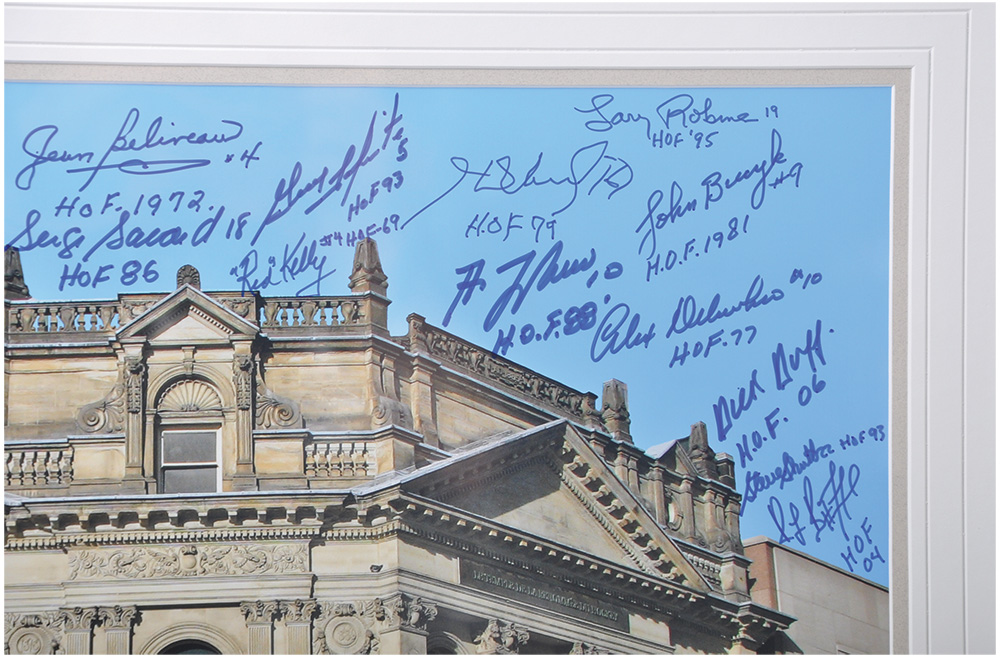 Jean Beliveau #4
HOF. 1972.
Serge Savard 18
HOF 86
5
HOF 93
"Red" Kelly #4 HOF-69
H.O.F 79
Larry Robinson 19
HOF '95
John Bucyk #9
H.O.F. 1981
10
H.O.F. 88
Alex Delvecchio #10
HOF-77
Dick Duff.
H.O.F. 06
Steve Shutt 22 HOF 93
HOF
04